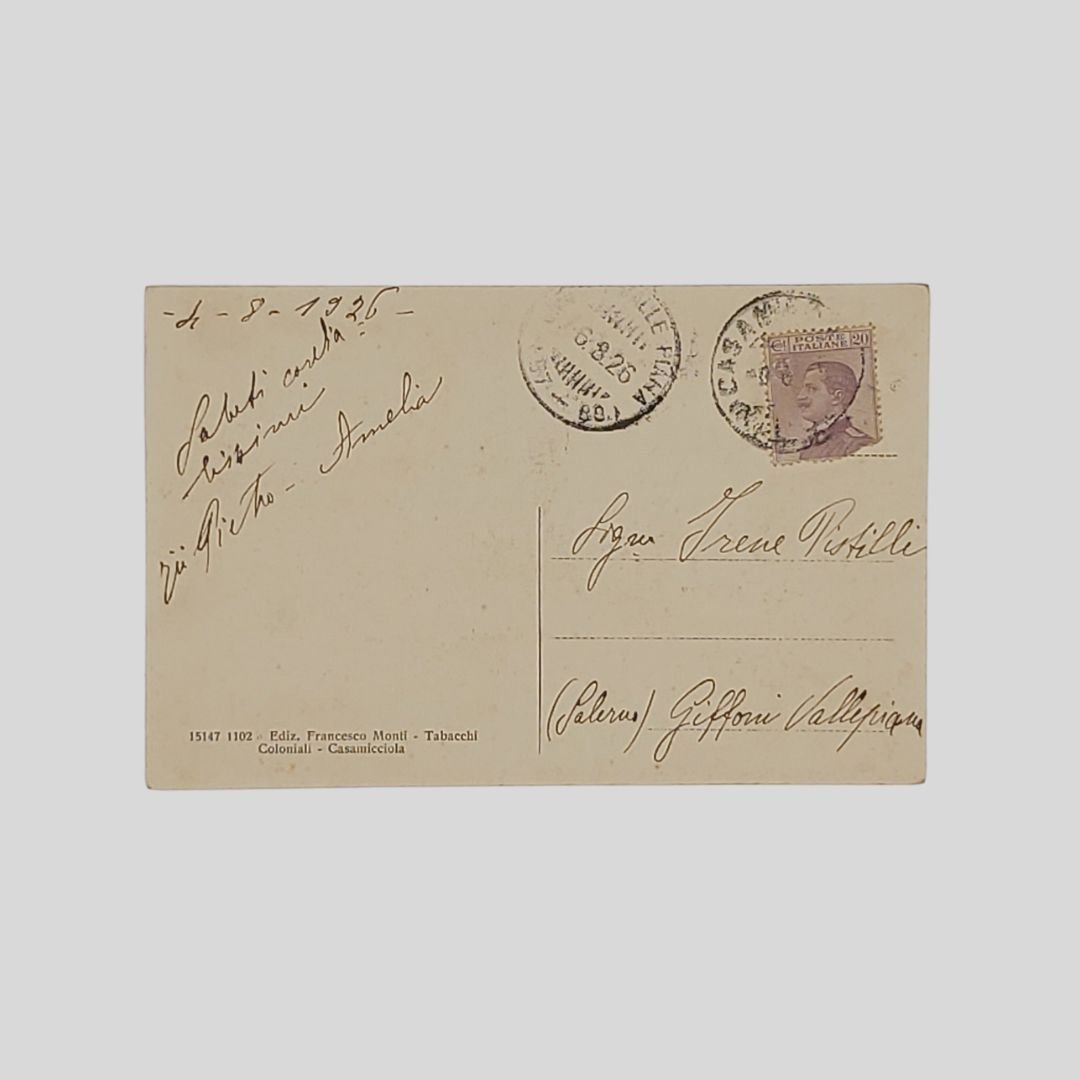 - 4 - 8 - 1926 -
Saluti cordia-
lissimi
zii Pietro - Amelia
LLE PIANA
6.8.26
CASAMIC
POSTE
ITALIANE
Ct 20
Sigra Irene Pistilli
(Salerno) Giffoni Vallepiana
15147 1102 - Ediz. Francesco Monti - Tabacchi
Coloniali - Casamicciola